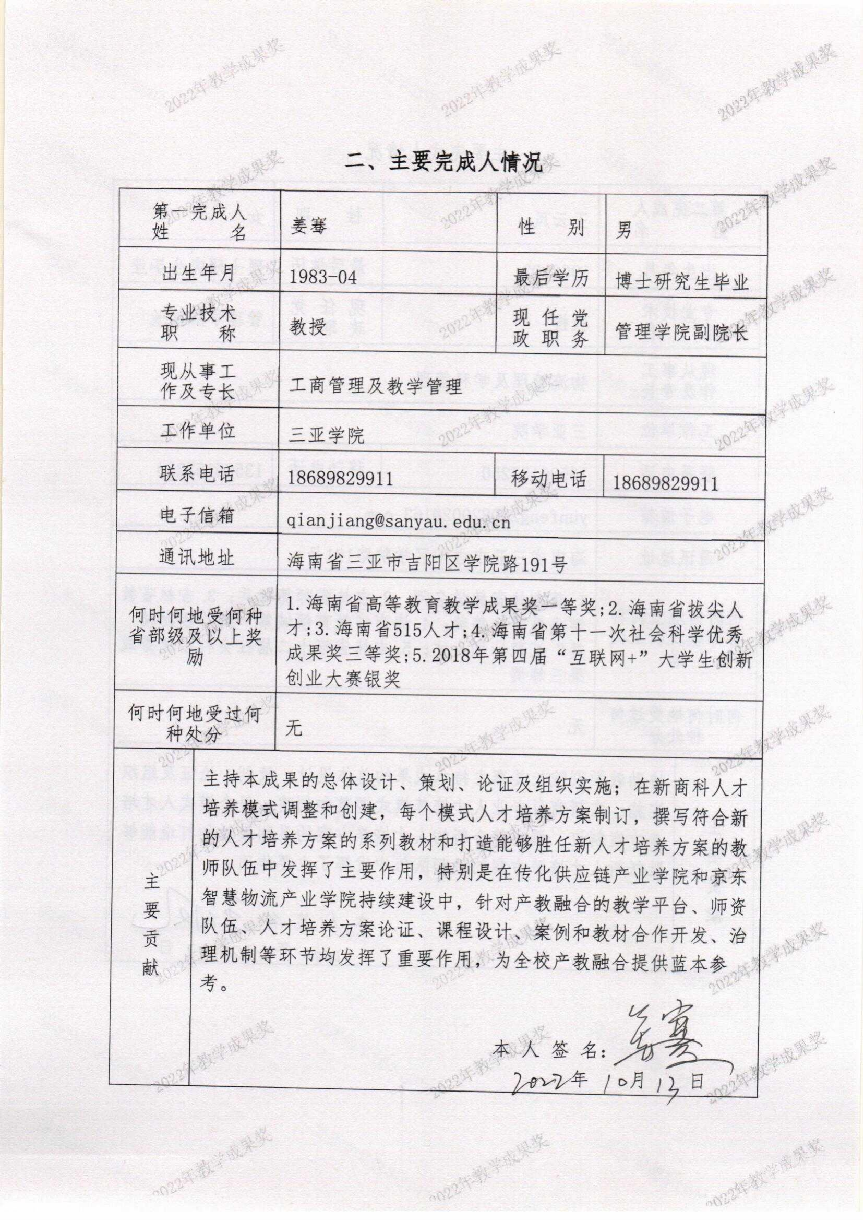 二、主要完成人情况
第一完成人
姓 名
姜骞
性 别
男
出生年月
1983-04
最后学历
博士研究生毕业
专业技术
职 称
教授
现 任 党
政 职 务
管理学院副院长
现从事工
作及专长
工商管理及教学管理
工作单位
三亚学院
联系电话
18689829911
移动电话
18689829911
电子信箱
qianjiang@sanyau.edu.cn
通讯地址
海南省三亚市吉阳区学院路191号
何时何地受何种
省部级及以上奖
励
1.海南省高等教育教学成果奖一等奖;2.海南省拔尖人
才;3.海南省515人才;4.海南省第十一次社会科学优秀
成果奖三等奖;5.2018年第四届“互联网+”大学生创新
创业大赛银奖
何时何地受过何
种处分
无
主
要
贡
献
主持本成果的总体设计、策划、论证及组织实施；在新商科人才
培养模式调整和创建，每个模式人才培养方案制订，撰写符合新
的人才培养方案的系列教材和打造能够胜任新人才培养方案的教
师队伍中发挥了主要作用，特别是在传化供应链产业学院和京东
智慧物流产业学院持续建设中，针对产教融合的教学平台、师资
队伍、人才培养方案论证、课程设计、案例和教材合作开发、治
理机制等环节均发挥了重要作用，为全校产教融合提供蓝本参
考。
本 人 签 名：姜骞
2022年 10月 13日
2022年教学成果奖